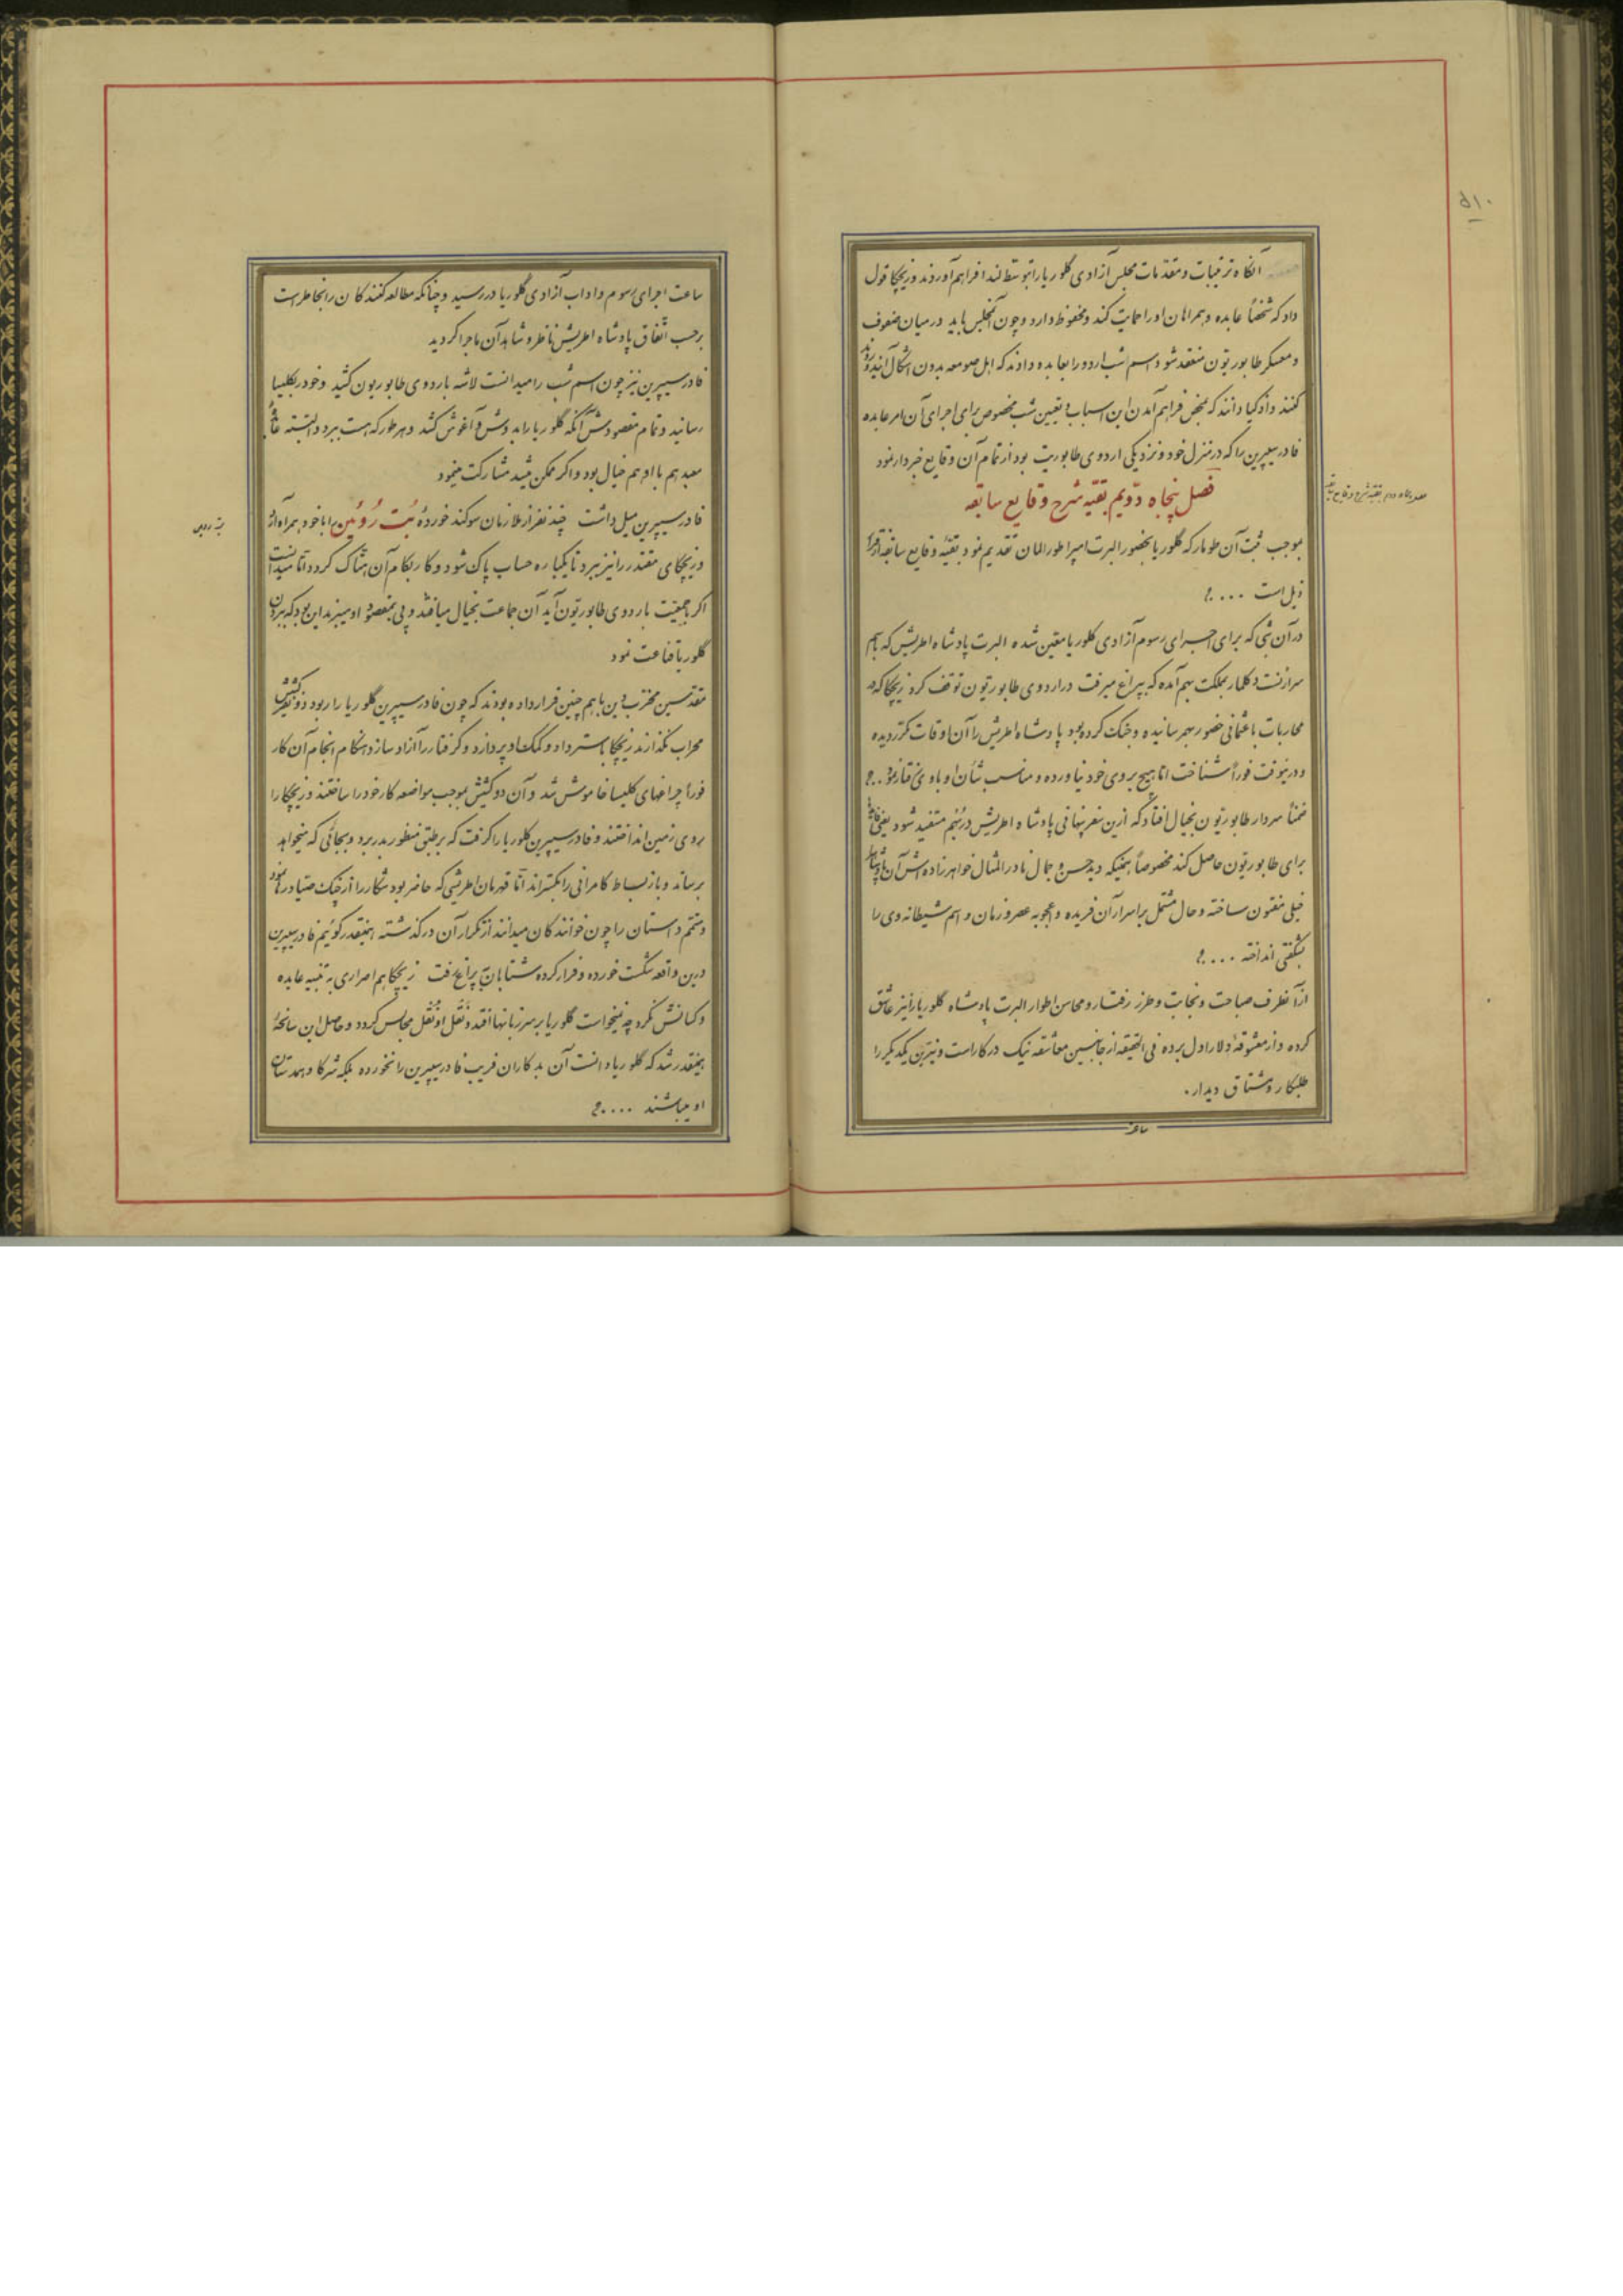 ۵۱۰
آنگاه ترتیبات و مقدمات مجلس آزادی گلوریا را بتوسط لندا فراهم آوردند و زیچکا قول
داد که شخصاً عابده و همراهان او را حمایت کند و محفوظ دارد و چون آن مجلس باید در میان صفوف
و معسکر طابوریتون منعقد شود اسم شب اردو را بعابده دادند که اهل صومعه بدون اشکال آیند و روند
کنند و ادکیا دانند که بمحض فراهم آمدن این اسباب و تعیین شب مخصوص برای اجرای آن امر عابده
فادر سیپرین را که در منزل خود و نزدیکی اردوی طابوریت بود از تمام آن وقایع خبردار نمود
فصل پنجاه دویم بقیه شرح وقایع سابقه
فصل پنجاه دویم بقیه شرح وقایع سابقه
بموجب ثبت آن طومار که گلوریا بحضور البرت امپراطور المان تقدیم نمود بقیه وقایع سابقه از قرار
ذیل است ....
در آن شبی که برای اجرای رسوم آزادی گلوریا معین شده البرت پادشاه اطریش که باسم
سرارنست دکلمار بمملکت بهم آمده که بپراغ میرفت در اردوی طابوریتون توقف کرد زیچکا که در
محاربات با عثمانی حضور بهمرسانیده و جنک کرده بود پادشاه اطریش را آن اوقات مکرر دیده
و در نیوقت فوراً شناخت اما هیچ بروی خود نیاورده و مناسب شأن او با وی رفتار نمود ..
ضمناً سردار طابوریتون بخیال افتاد که ازین سفر پنهانی پادشاه اطریش در بهم مستفید شود یعنی فایده
برای طابوریتون حاصل کند مخصوصاً همینکه دید حسن و جمال نادر المثال خواهرزاده اش آن پادشاه را
خیلی مفتون ساخته و حال مشتمل بر اسرار آن فریده و اعجوبه عصر و زمان و اسم شیطانه وی را
بشگفتی انداخته ....
از آنطرف صباحت و نجابت و طرز رفتار و محاسن اطوار البرت پادشاه گلوریا را نیز عاشق
کرده و از معشوقه دلارا دل برده فی الحقیقه از جانبین معاشقه نیک در کار است و نیرین یکدیگر را
طلبکار و مشتاق دیدار.
ساعت
ساعت اجرای رسوم و اداب آزادی گلوریا در رسید و چنانکه مطالعه کنندکان را بخاطر است
برحسب اتفاق پادشاه اطریش ناظر و شاهد آن ماجرا گردید
فادر سیپرین نیز چون اسم شب را میدانست لاشه باردوی طابوریون کشید و خود ر بکلیسیا
رسانید و تمام مقصودش آنکه گلوریا را بدوش و آغوش کشد و هر طور که هست ببرد و البته
معبد هم با او هم خیال بود و اگر ممکن میشد مشارکت مینمود
فادر سیپرین میل داشت چند نفر از ملازمان سوگند خورده بُت رُوئین را با خود همراه آرد
بت روئین
و زیچکای مقتدر را نیز ببرد تا یکباره حساب پاک شود و کار بکام آن هتاک گردد اما میدانست
اگر با جمعیت باردوی طابوریتون آید آن جماعت بخیال میافتند و پی بمقصود او میبرند این بود که ببردن
گلوریا قناعت نمود
مقدسین مخرب دین باهم چنین قرار داده بودند که چون فادر سیپرین گلوریا را ربود دو نفر کشیش
محراب نگذارند زیچکا باسترداد و کمک او پردازد و گرفتار را آزاد سازد هنکام انجام آن کار
فوراً چراغهای کلیسا خاموش شد و آن دو کشیش بموجب مواضعه کار خود را ساختند و زیچکا را
بروی زمین انداختند و فادر سیپرین گلوریا را گرفت که بر طبق منظور بدر برد و بجائی که میخواهد
برساند و باز بساط کامرانی را بگستراند اما قهرمان اطریشی که حاضر بود شکار را از چنک صیاد در ربود
و متمم داستان را چون خوانندکان میدانند از تکرار آن درگذشته همینقدر گوئیم فادر سیپرین
درین واقعه شکست خورده و فرار کرده شتابان بپراغ رفت زیچکا هم اصراری به تنبیه عابده
و کسانش نکرد چه نمیخواست گلوریا بر سر زبانها افتد و نقل او نقل مجالس گردد و حاصل این سانحه
اینقدر شد که گلوریا دانست آن بدکاران فریب فادر سیپرین را نخورده بلکه شرکا و همدستان
او میباشند ....